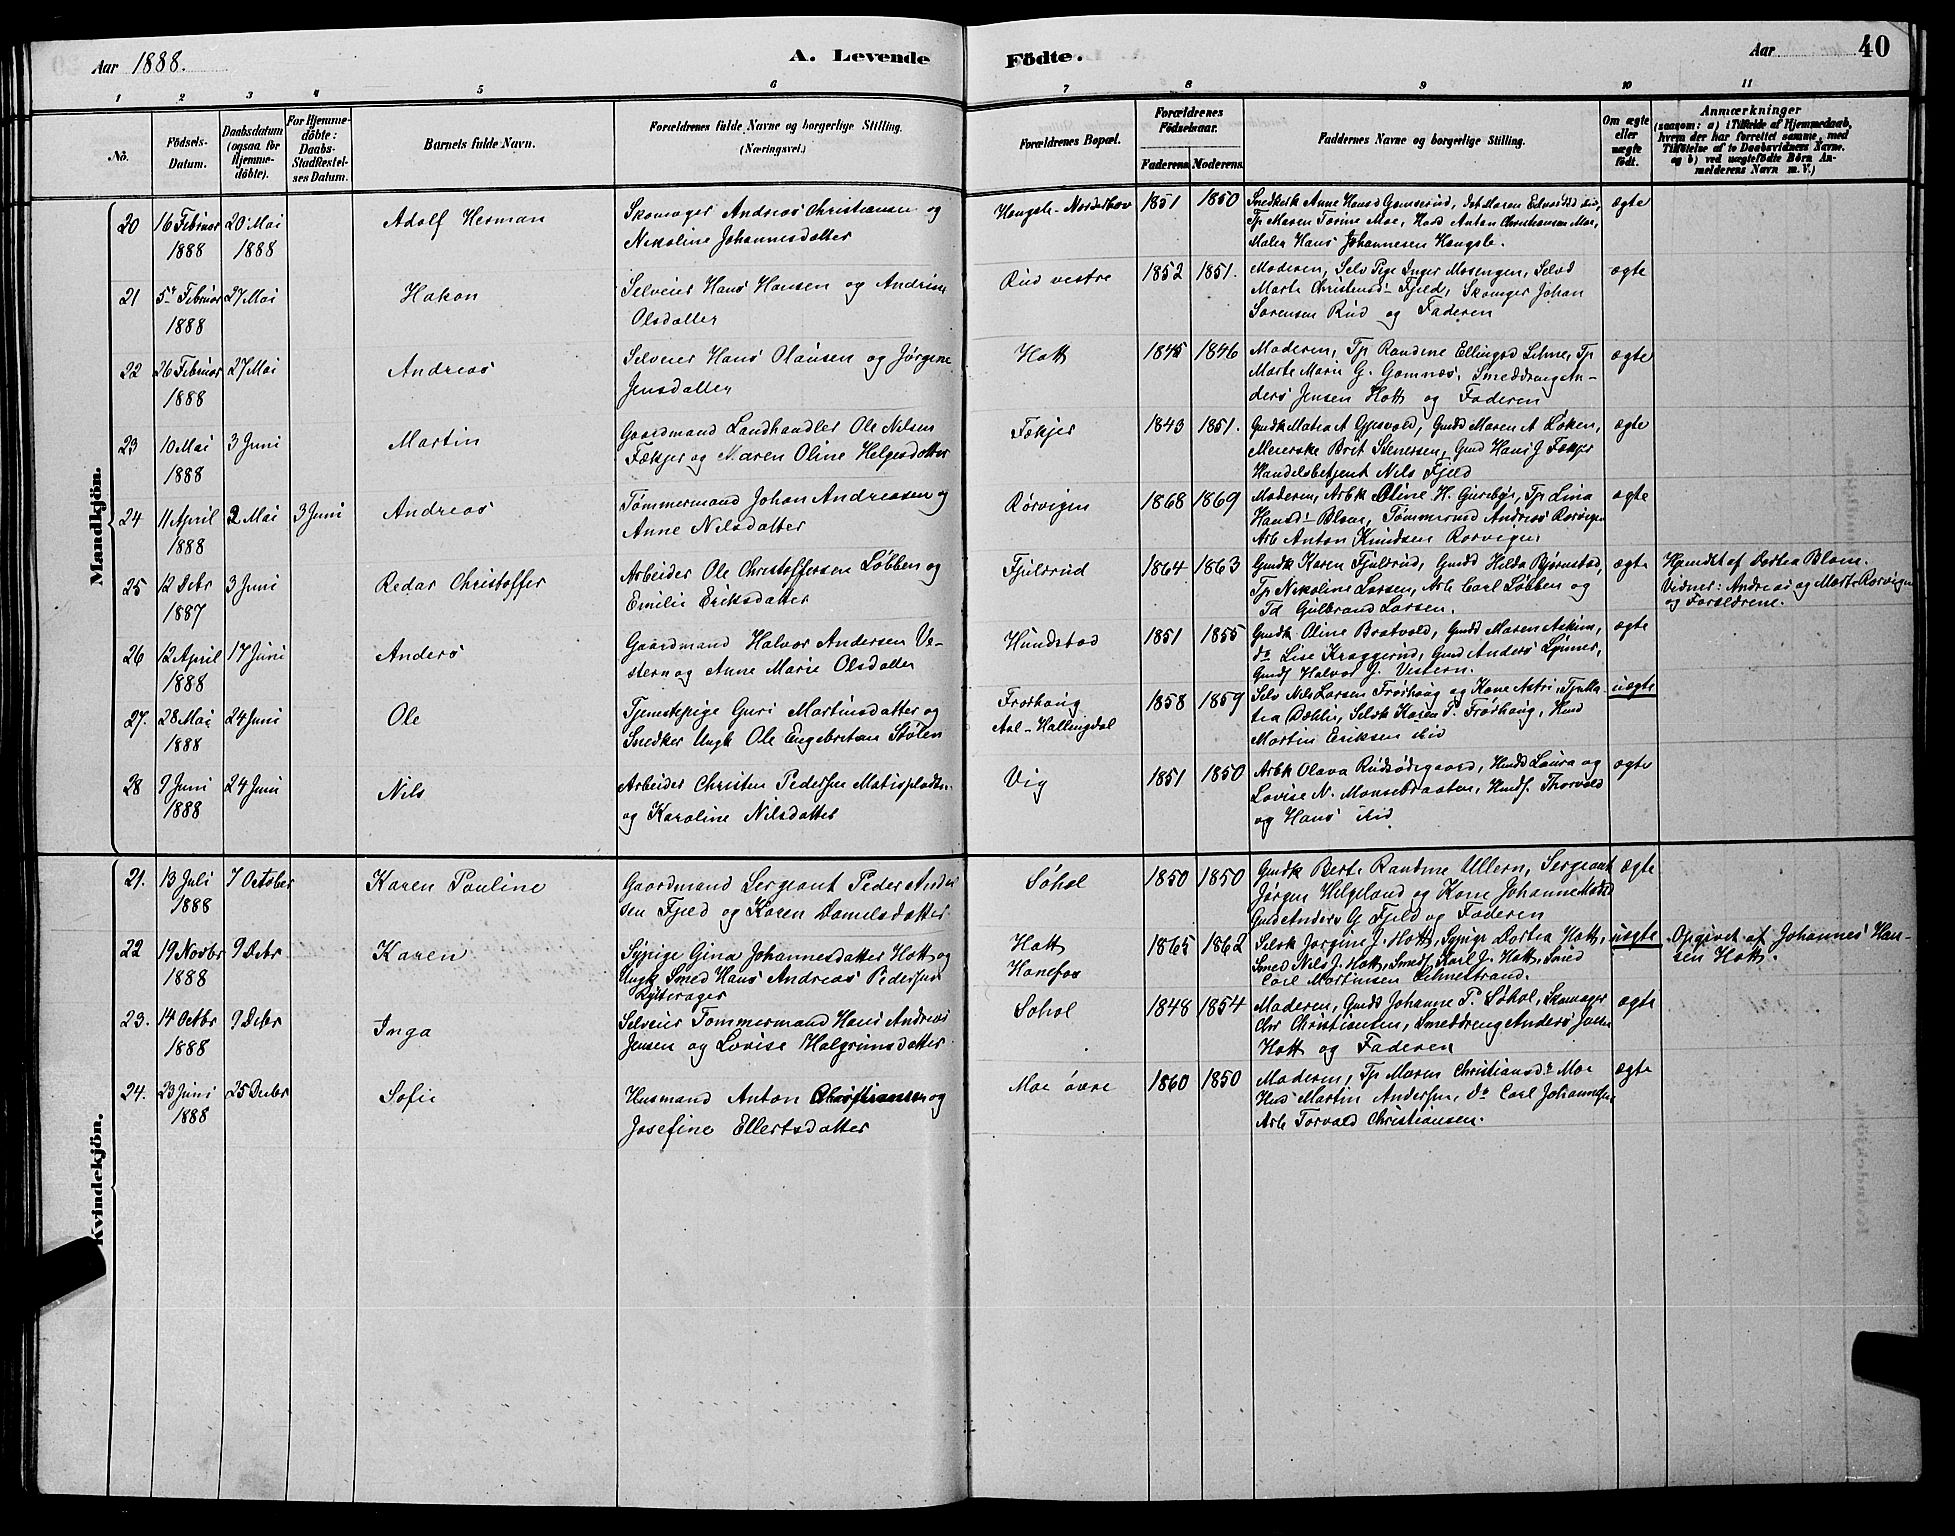 Aar 1888.
A. Levende
Födte.
Aar
40
1 2 3 4 5 6 7 8 9 10 11
No.
Födsels-
Datum.
Daabsdatum
(ogsaa for
Hjemme-
döbte).
For Hjemme-
döbte:
Daabs-
Stadfæstel-
ses Datum.
Barnets fulde Navn.
Forældrenes fulde Navne og borgerlige Stilling.
(Næringsvei.)
Forældrenes Bopæl.
Forældrenes
Födselsaar.
Faderens. Moderens.
Faddernes Navne og borgerlige Stilling.
Om ægte
eller
uægte
födt.
Anmærkninger
(saasom: a) i Tilfælde af Hjemmedaab,
hvem der har forrettet samme, med
Tilföielse af to Daabsvidners Navne,
og b) ved uægtefödte Börn An-
melderens Navn m. V.)
Mandkjön.
20 16 Februar 20 Mai Adolf Herman Skomager Andreas Christiansen og Hougsle-Norderhov 1851 1850 ægte
1888 1888 Nikoline Johannesdatter
Tp Maren Torine Moe, Anton Christiansen Moe,
Maler Hans Johannesen Hougsle.
21 5t Februar 27 Mai Hakon Selveier Hans Hansen og Andrine Rud vestre 1852 1851. Moderen, Selv Pige Inger Mosengen, Selvd ægte
1888 Olsdatter Marte Christensd- Fjeld, Skomager Johan
Sørensen Rud og Faderen
22 26 Februar 27 Mai Andreas Selveier Hans Olausen og Jørgine Hott 1845 1846 Moderen, Tp Randine Ellingsd Lehne, Tp ægte
1888 Jensdatter Marte Marie G. Gomnæs, Smeddreng An-
ders Jensen Hott og Faderen
23 10 Mai 3 Juni Martin Gaardmand Landhandler Ole Nilsen Fækjer 1843 1851. Gmdk Matea A Gjesvold, Gmdd Maren A Løken, ægte
1888 Fækjer og Maren Oline Helgesdatter Meierske Brit Stenersen, Gmd Hans J. Fækjer
Handelsbetjent Nils Fjeld
24 11 April 2 Mai 3 Juni Andreas Tømmermand Johan Andreasen og Rørvigen 1868 1869 Moderen, Arbk Oline H. Gureby, Tp Lina ægte
1888 Anne Nilsdatter Hansd- Blom, Tømmermd Andreas Rørvigen
Arb Anton Knudsen Rørvigen
25 12 Debr 3 Juni Redar Christoffer Arbeider Ole Christoffersen Løbben og Fjuldrud 1864 1863 Gmdk Karen Fjuldrud, Gmdd Hilda Bjørnstad, ægte Hjemdt af Dortea Blom.
1887 Emilie Eriksdatter Tp Nikoline Larsen, Arb Carl Løbben og Vidner: Andreas og Marte Rørvigen
Td Gulbrand Larsen. og Forældrene.
26 12 April 17 Juni Anders Gaardmand Halvor Andersen Ve- Hundstad 1851 1855 Gmdk Oline Bratvold, Gmdd Maren Askim, ægte
1888 stern og Anne Marie Olsdatter do Lise Kraggerud, Gmd Anders Lynner,
Gmdf Halvor J. Vestern.
27. 28 Mai 24 Juni Ole Tjenestpige Guri Martinsdatter og Frøshaug 1858 1859 Selv Nils Larsen Frøshaug og Kone Astri, Tp Ma- uægte
1888 Snedker Ungk Ole Engebretsen Stølen Aal-Hallingdal tea Dæhlie, Selvk Karen P. Frøshaug, Hmd
Martin Eriksen ibid
28 9 Juni 24 Juni Nils Arbeider Christen Pedersen Matisplads Vig 1851 1850 Arbk Olava Rudsødegaard, Hmdd Laura og ægte
1888 og Karoline Nilsdatter Lovise N. Monsebraaten, Hmdf. Thorvald
og Hans ibid
Kvindekjön.
21. 13 Juli 7 October Karen Pauline Gaardmand Sergeant Peder Ander Søhol 1850 1850 Gmdk Berte Randine Ullern, Sergeant ægte
1888 sen Fjeld og Karen Danielsdatter Jørgen Helgeland og Kone Johanne Madsd
Gmd Anders G. Fjeld og Faderen
22 19 Novbr 9 Debr Karen Sypige Gina Johannesdatter Hott og Hott 1865 1862 Selvk Jørgine J. Hott, Sypige Dortea Hott, uægte Opgivet af Johannes Han-
1888 Ungk Smed Hans Andreas Pedersen Hønefos Smed Nils J. Hott, Smedf Karl J. Hott, Smed sen Hott.
Rytterager Carl Martinsen Lehnestrand.
23. 14 Octbr 9 Debr Inga Selveier Tømmermand Hans Andreas Søhol 1848 1854 Moderen, Gmdd Johanne P. Søhol, Skomager ægte
1888 Jensen og Lovise Halgrimsdatter Chr Christiansen, Smeddreng Anders Jensen
Hott og Faderen
24. 23 Juni 25 Decbr Sofie Husmand Anton Christiansen og Moe øvre 1860 1850 Moderen, Tp Maren Christiansdr Moe ægte
1888 Josefine Ellertsdatter Hus Martin Andersen, Do Carl Johannesen,
Arb Torvald Christiansen.